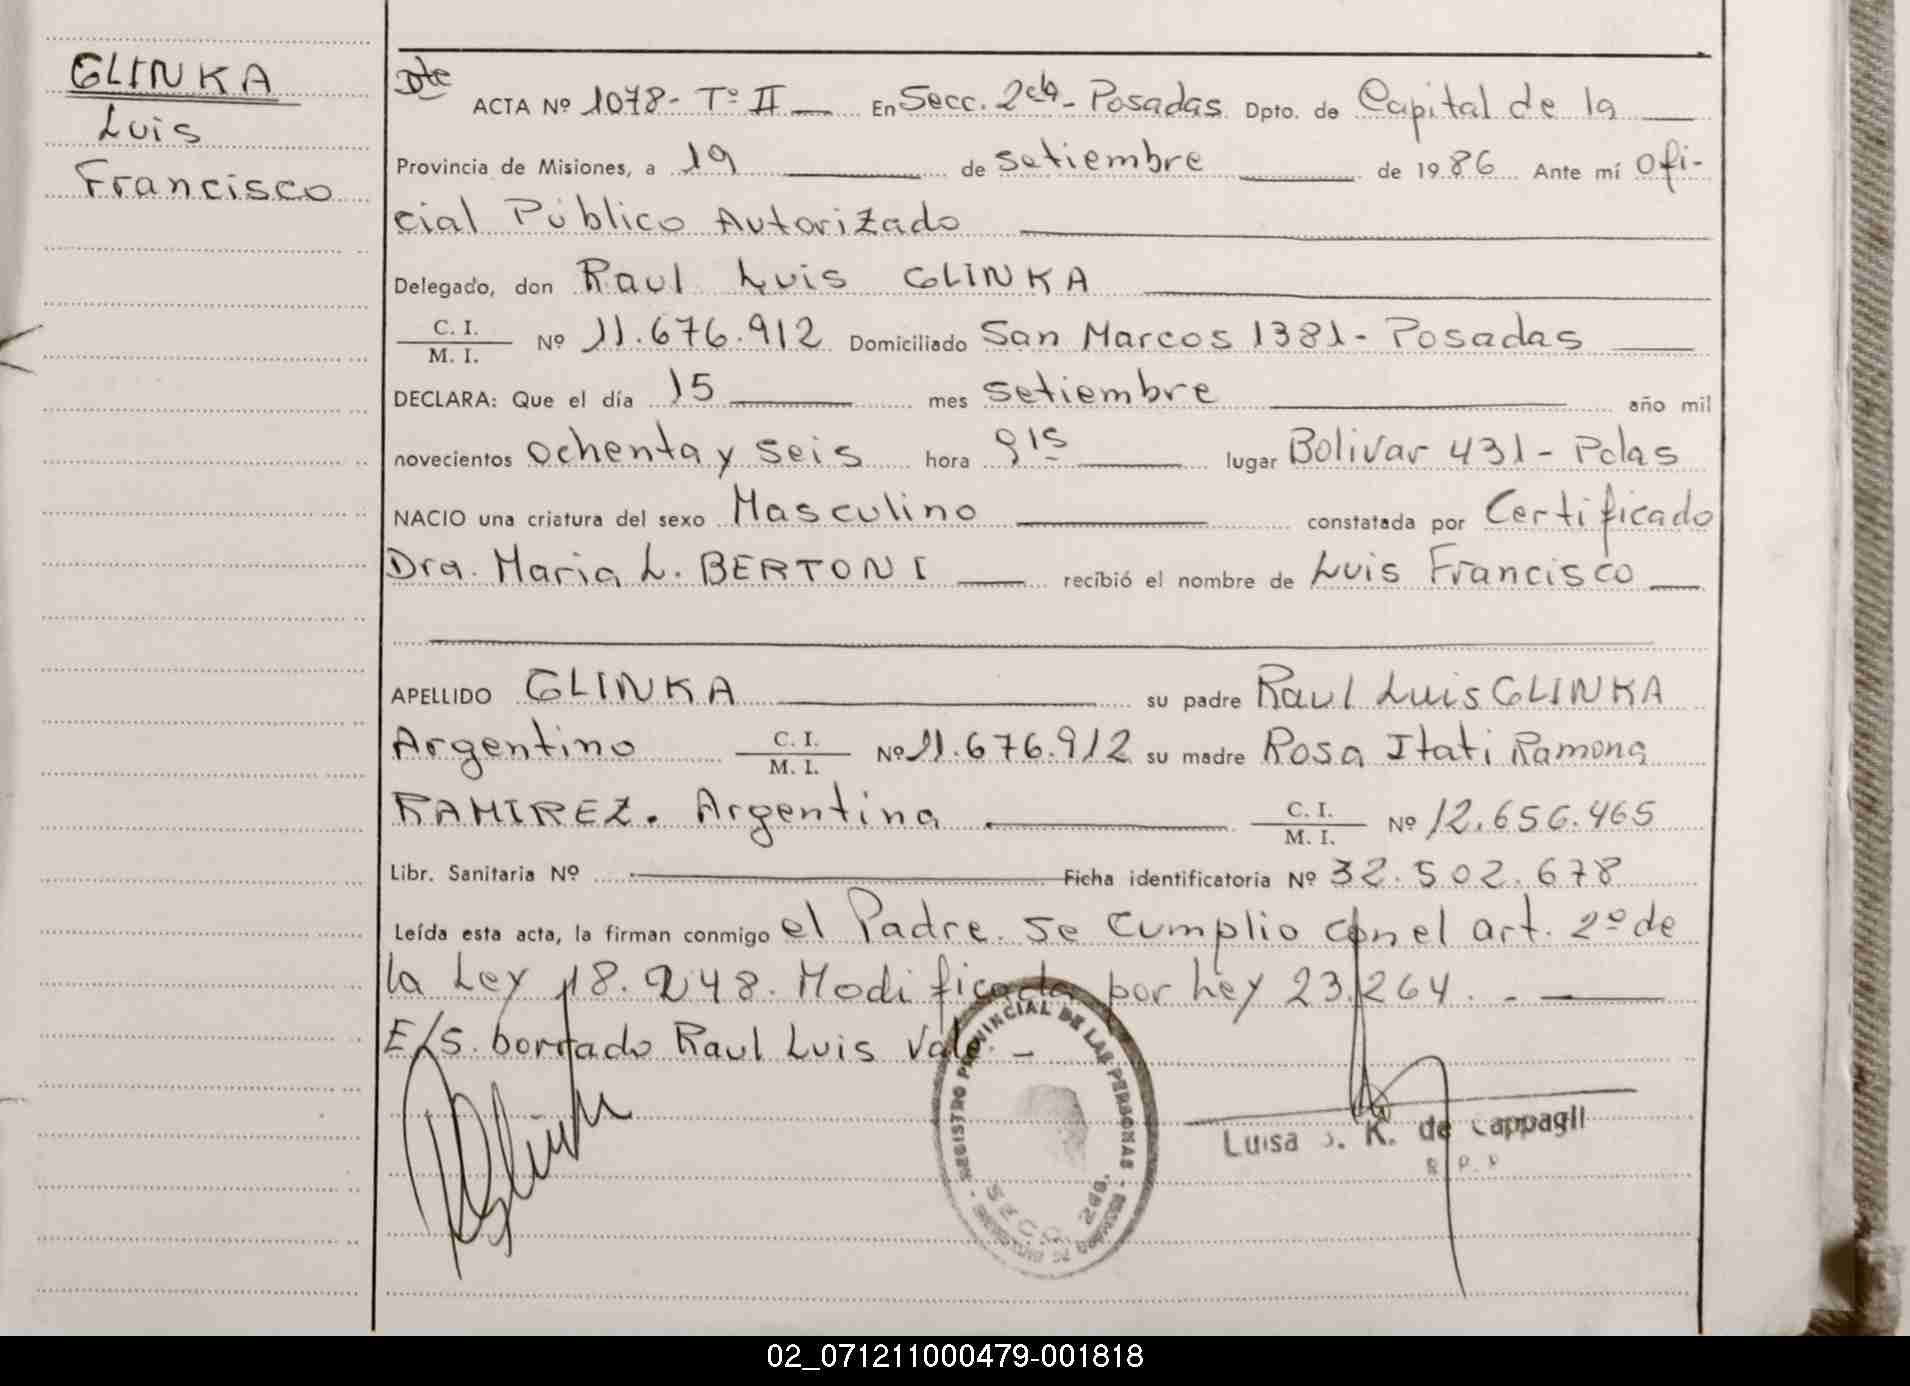 GLINKA
Luis
Francisco
Dte
ACTA Nº 1078- Tº II — En Secc. 2da - Posadas Dpto. de Capital de la
Provincia de Misiones, a 19 de setiembre de 1986 Ante mí Ofi-
cial Público Autorizado
Delegado, don Raul Luis GLINKA
C. I.
M. I. Nº 11.676.912 Domiciliado San Marcos 1381- Posadas
DECLARA: Que el día 15 mes setiembre año mil
novecientos ochenta y seis hora 9 15 lugar Bolivar 431 - Pdas
NACIO una criatura del sexo Masculino constatada por Certificado
Dra. Maria L. BERTONI recibió el nombre de Luis Francisco
APELLIDO GLINKA su padre Raul Luis GLINKA
Argentino C. I.
M. I. Nº 11.676.912 su madre Rosa Itati Ramona
RAMIREZ. Argentina C. I.
M. I. Nº 12.656.465
Libr. Sanitaria Nº Ficha identificatoria Nº 32.502.678
Leída esta acta, la firman conmigo el Padre. Se cumplio con el art. 2º de
la Ley 18.248. Modificada por Ley 23.264. . —
E/S. borrado Raul Luis Vale. —
REGISTRO PROVINCIAL DE LAS PERSONAS
SECC. 2da.
Luisa K. de Cappagli
02_071211000479-001818